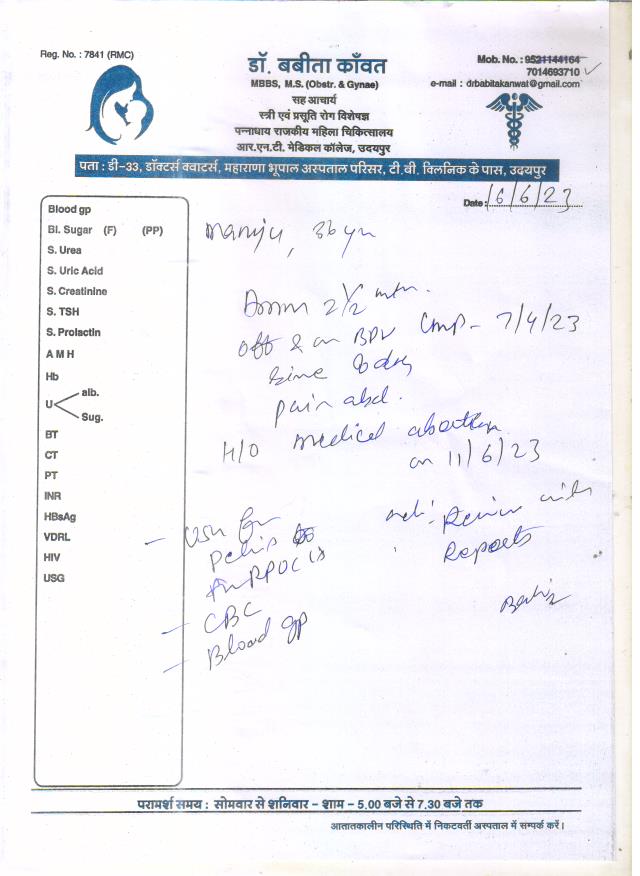 Reg. No. : 7841 (RMC)
डॉ. बबीता काँवत
MBBS, M.S. (Obstr. & Gynae)
सह आचार्य
स्त्री एवं प्रसूति रोग विशेषज्ञ
पन्नाधाय राजकीय महिला चिकित्सालय
आर.एन.टी. मेडिकल कॉलेज, उदयपुर
Mob. No. : 9521144164
7014693710
e-mail : drbabitakanwat@gmail.com
पता : डी-33, डॉक्टर्स क्वाटर्स, महाराणा भूपाल अस्पताल परिसर, टी.बी. क्लिनिक के पास, उदयपुर
Date : 16/6/23
Blood gp
Bl. Sugar (F) (PP)
S. Urea
S. Uric Acid
S. Creatinine
S. TSH
S. Prolactin
A M H
Hb
U alb.
Sug.
BT
CT
PT
INR
HBsAg
VDRL
HIV
USG
Manju, 36 yr
2½ mth.
off & on BPV Lmp - 7/4/23
since days
pain abd.
H/O medical abortion
on 11/6/23
- USG for
pelvis
RPOC's
- CBC
- Blood gp
Review with
Reports
परामर्श समय : सोमवार से शनिवार - शाम - 5.00 बजे से 7.30 बजे तक
आतातकालीन परिस्थिति में निकटवर्ती अस्पताल में सम्पर्क करें।